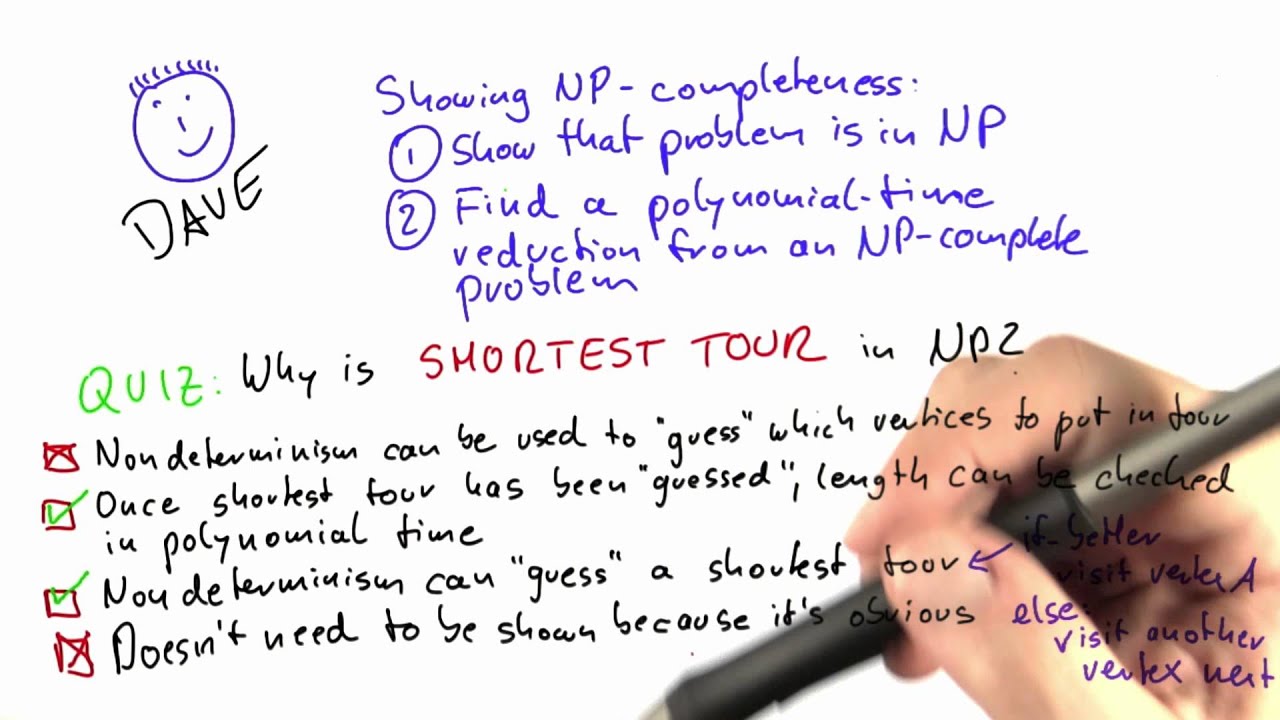 DAVE
Showing NP-completeness:
1 Show that problem is in NP
2 Find a polynomial-time
reduction from an NP-complete
problem
QUIZ: Why is SHORTEST TOUR in NP?
Nondeterminism can be used to "guess" which vertices to put in tour
Once shortest tour has been "guessed", length can be checked
in polynomial time
Nondeterminism can "guess" a shortest tour
if-better
visit vertex A
Doesn't need to be shown because it's obvious
else:
visit another
vertex next